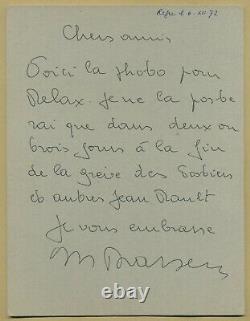 Repu le 6.XII 72
Chers amis
Voici la photo pour
Relax. Je ne la poste
rai que dans deux ou
trois jours à la fin
de la grève des Postiers
et autres Jean Rault
Je vous embrasse
ebay